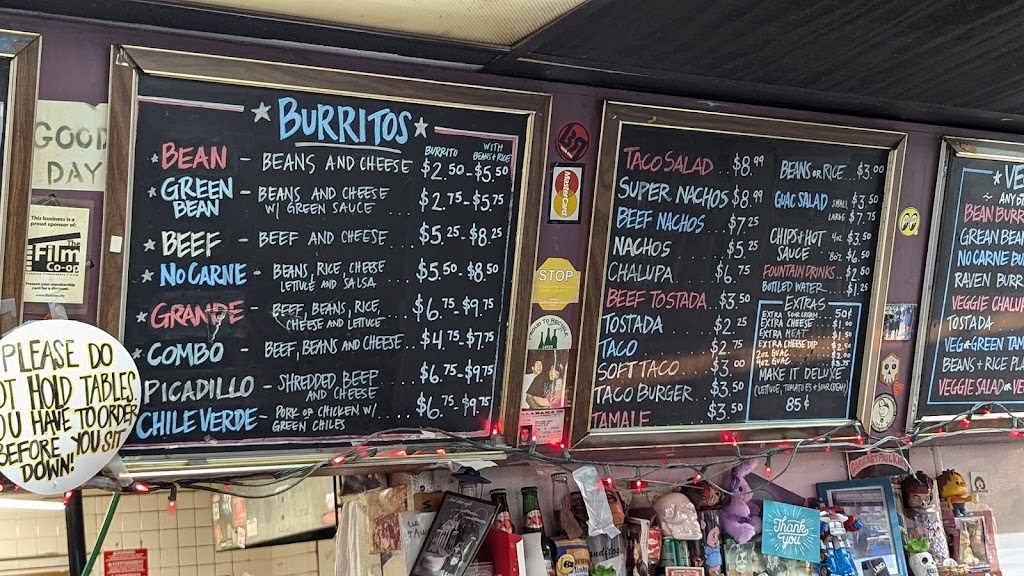 GOOD
DAY
This business is a
proud sponsor of:
The
Film
Co-op
PLEASE DO
NOT HOLD TABLES.
YOU HAVE TO ORDER
BEFORE YOU SIT
DOWN!
BURRITOS
BURRITO
WITH
BEANS & RICE
BEAN - BEANS AND CHEESE $2.50 - $5.50
GREEN
BEAN - BEANS AND CHEESE
W/ GREEN SAUCE ... $2.75 - $5.75
BEEF - BEEF AND CHEESE ... $5.25 - $8.25
NO CARNE - BEANS, RICE, CHEESE
LETTUCE AND SALSA $5.50 - $8.50
GRANDE - BEEF, BEANS, RICE,
CHEESE AND LETTUCE $6.75 - $9.75
COMBO - BEEF, BEANS AND CHEESE... $4.75 - $7.75
PICADILLO - SHREDDED, BEEF
AND CHEESE ... $6.75 - $9.75
CHILE VERDE - PORK OR CHICKEN W/
GREEN CHILES ... $6.75 - $9.75
MasterCard
STOP
TACO SALAD ... $8.99
SUPER NACHOS $8.99
BEEF NACHOS ... $7.25
NACHOS ... $5.25
CHALUPA ... $6.75
BEEF TOSTADA ... $3.50
TOSTADA ... $2.25
TACO ... $2.75
SOFT TACO ... $3.00
TACO BURGER ... $3.50
TAMALE ... $3.50
BEANS OR RICE... $3.00
GUAC SALAD SMALL $3.50
LARGE $7.75
CHIPS & HOT
SAUCE 4oz $3.50
8oz $6.50
FOUNTAIN DRINKS
BOTTLED WATER ... $1.25
EXTRAS
EXTRA SOUR CREAM 50¢
EXTRA CHEESE $1.00
EXTRA MEAT
EXTRA CHEESE DIP
2oz GUAC
4oz GUAC
MAKE IT DELUXE
(LETTUCE, TOMATOES & SOUR CREAM)
85¢
BEAN BURR
GREAN BEAN
NO CARNE BU
RAVEN BURR
VEGGIE CHALU
TOSTADA
VEG & GREEN TAM
BEANS & RICE PLA
VEGGIE SALAD OR
Thank
you